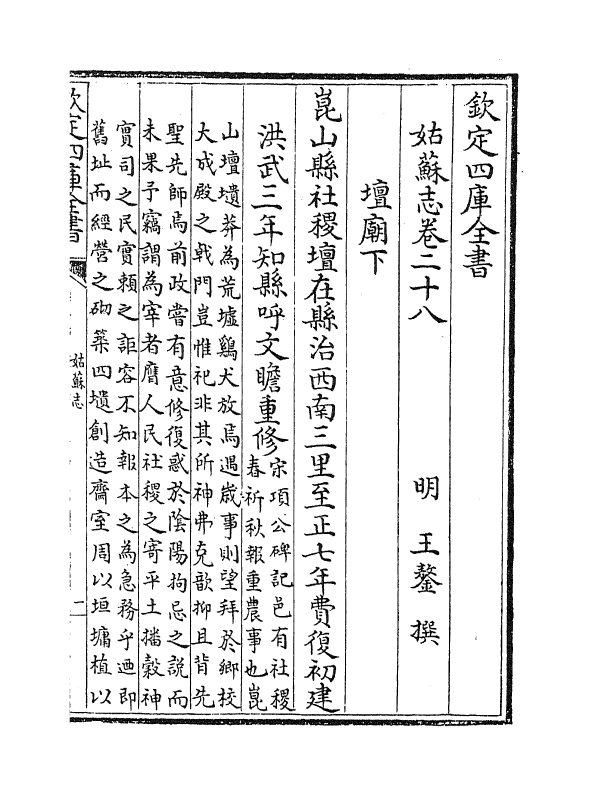 欽定四庫全書
姑蘇志卷二十八　明　王鏊　撰
壇廟下
崑山縣社稷壇在縣治西南三里至正七年費復初建
洪武三年知縣呼文瞻重修
宋項公碑記邑有社稷
春祈秋報重農事也崑
山壇壝莽為荒墟鷄犬放焉遇歲事則望拜於鄉校
大成殿之㦸門豈惟祀非其所神弗克歆抑且背先
聖先師焉前政嘗有意修復惑於陰陽拘忌之說而
未果予竊謂為宰者膺人民社稷之寄平土播穀神
實司之民實賴之詎容不知報本之為急務乎迺即
舊址而經營之砌築四壝創造齋室周以垣墉植以
欽定四庫全書
姑蘇志